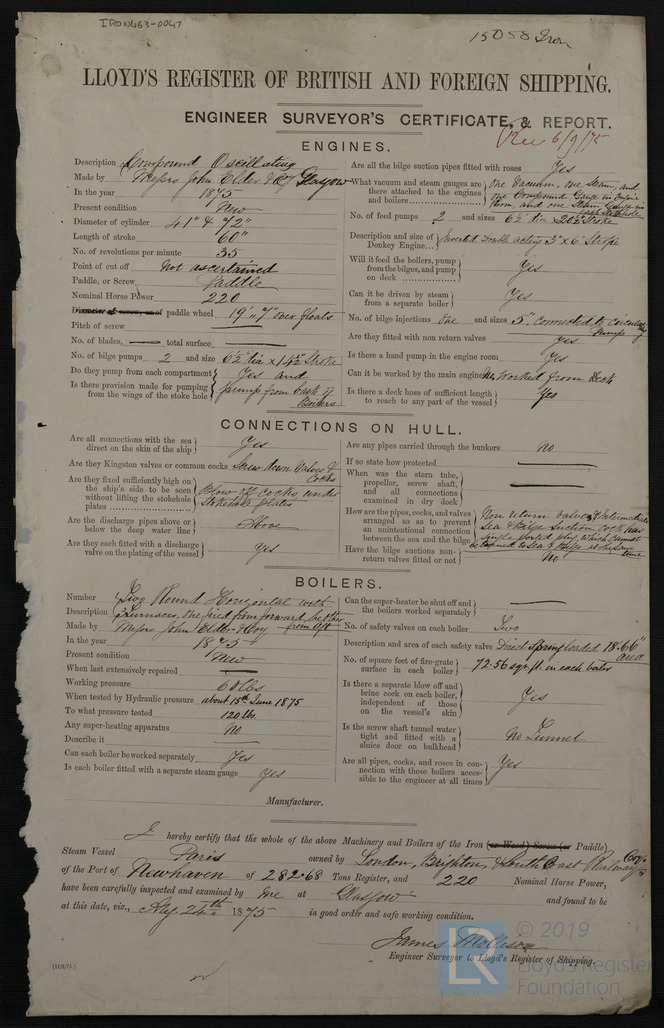 IRON463-0047
15058 Iron
LLOYD'S REGISTER OF BRITISH AND FOREIGN SHIPPING.
ENGINEER SURVEYOR'S CERTIFICATE, & REPORT.
Rec 6/9/75
ENGINES.
Description Compound Oscillating
Made by Messrs John Elder & Coy Glasgow
In the year 1875
Present condition New
Diameter of cylinder 41" & 72"
Length of stroke 60"
No. of revolutions per minute 35
Point of cut off Not ascertained
Paddle, or Screw Paddle
Nominal Horse Power 220
Diameter of screw, or of paddle wheel 19' 7" over floats
Pitch of screw
No. of blades, total surface
No. of bilge pumps 2 and size 6½ dia x 14½ Stroke
Do they pump from each compartment Yes and
Is there provision made for pumping from the wings of the stoke hole pump from back of Boilers
Are all the bilge suction pipes fitted with roses Yes
What vacuum and steam gauges are there attached to the engines and boilers One Vacuum, one Steam, and one Compound Gauge in Engine Room, and one Steam Gauge in each stokehole
No. of feed pumps 2 and sizes 6½ dia x 20½ Stroke
Description and size of Donkey Engine Double acting 3" x 6" Stroke
Will it feed the boilers, pump from the bilges, and pump on deck Yes
Can it be driven by steam from a separate boiler Yes
No. of bilge injections One and sizes 5". Connected to circulating Pump
Are they fitted with non return valves Yes
Is there a hand pump in the engine room Yes
Can it be worked by the main engine No. Worked from Deck
Is there a deck hose of sufficient length to reach to any part of the vessel Yes
CONNECTIONS ON HULL.
Are all connections with the sea direct on the skin of the ship Yes
Are they Kingston valves or common cocks Screw down Valves & Cocks
Are they fixed sufficiently high on the ship's side to be seen without lifting the stokehole plates Blow off cocks under Stokehole plates
Are the discharge pipes above or below the deep water line Above
Are they each fitted with a discharge valve on the plating of the vessel Yes
Are any pipes carried through the bunkers No
If so state how protected
When was the stern tube, propeller, screw shaft, and all connections examined in dry dock
How are the pipes, cocks, and valves arranged so as to prevent an unintentional connection between the sea and the bilge Non return valves & Intermediate Sea & Bilge Suction, single ported plug, which cannot be turned to Sea & Bilge at the same time
Have the bilge suctions non-return valves fitted or not No
BOILERS.
Number Two Round Horizontal with
Description 3 Furnaces, One fired from forward, the other from Aft
Made by Messrs John Elder & Coy
In the year 1875
Present condition New
When last extensively repaired
Working pressure 60 lbs
When tested by Hydraulic pressure about 15th June 1875
To what pressure tested 120 lbs.
Any super-heating apparatus No
Describe it
Can each boiler be worked separately Yes
Is each boiler fitted with a separate steam gauge Yes
Can the super-heater be shut off and the boilers worked separately
No. of safety valves on each boiler Two
Description and area of each safety valve Direct spring loaded 18.66" area
No. of square feet of fire-grate surface in each boiler 72.56 sqr ft. in each boiler
Is there a separate blow off and brine cock on each boiler, independent of those on the vessel's skin Yes
Is the screw shaft tunnel water tight and fitted with a sluice door on bulkhead No Tunnel
Are all pipes, cocks, and roses in connection with these boilers accessible to the engineer at all times Yes
Manufacturer.
I hereby certify that the whole of the above Machinery and Boilers of the Iron (or Wood) Screw (or Paddle)
Steam Vessel Paris owned by London, Brighton, & South East Railway Coy.
of the Port of Newhaven of 282.68 Tons Register, and 220 Nominal Horse Power,
have been carefully inspected and examined by me at Glasgow and found to be
at this date, viz., Aug. 24th 1875 in good order and safe working condition.
James Mollison
Engineer Surveyor to Lloyd's Register of Shipping.
LR
© 2019
Lloyd's Register
Foundation